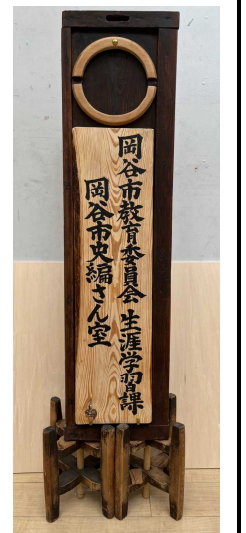 岡谷市教育委員会 生涯学習課
岡谷市史編さん室